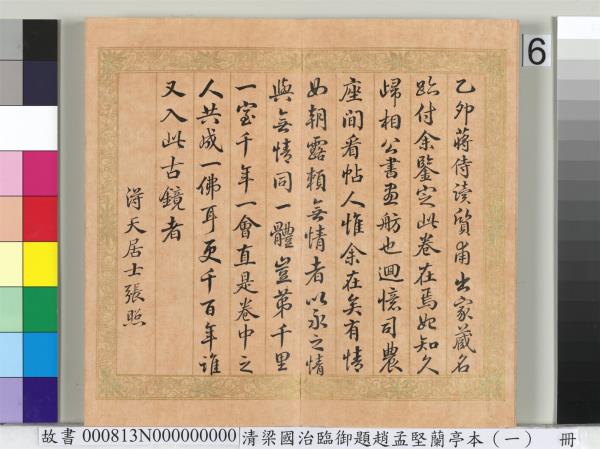 乙卯蔣侍讀質甫出家藏名
跡付余鑒定此卷在焉始知久
歸相公書畫舫也迴憶司農
座間看帖人惟余在矣有情
如朝露賴無情者以永之情
與無情同一體豈第千里
一室千年一會直是卷中之
人共成一佛耳更千百年誰
又入此古鏡者
得天居士張照
6
故書 000813N000000000 清梁國治臨御題趙孟堅蘭亭本（一） 冊